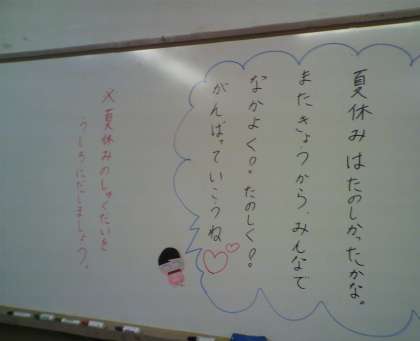 夏休みはたのしかったかな。
またきょうから、みんなで
なかよく?たのしく?
がんばっていこうね♡♡
×夏休みのしゅくだいを
うしろにだしましょう。